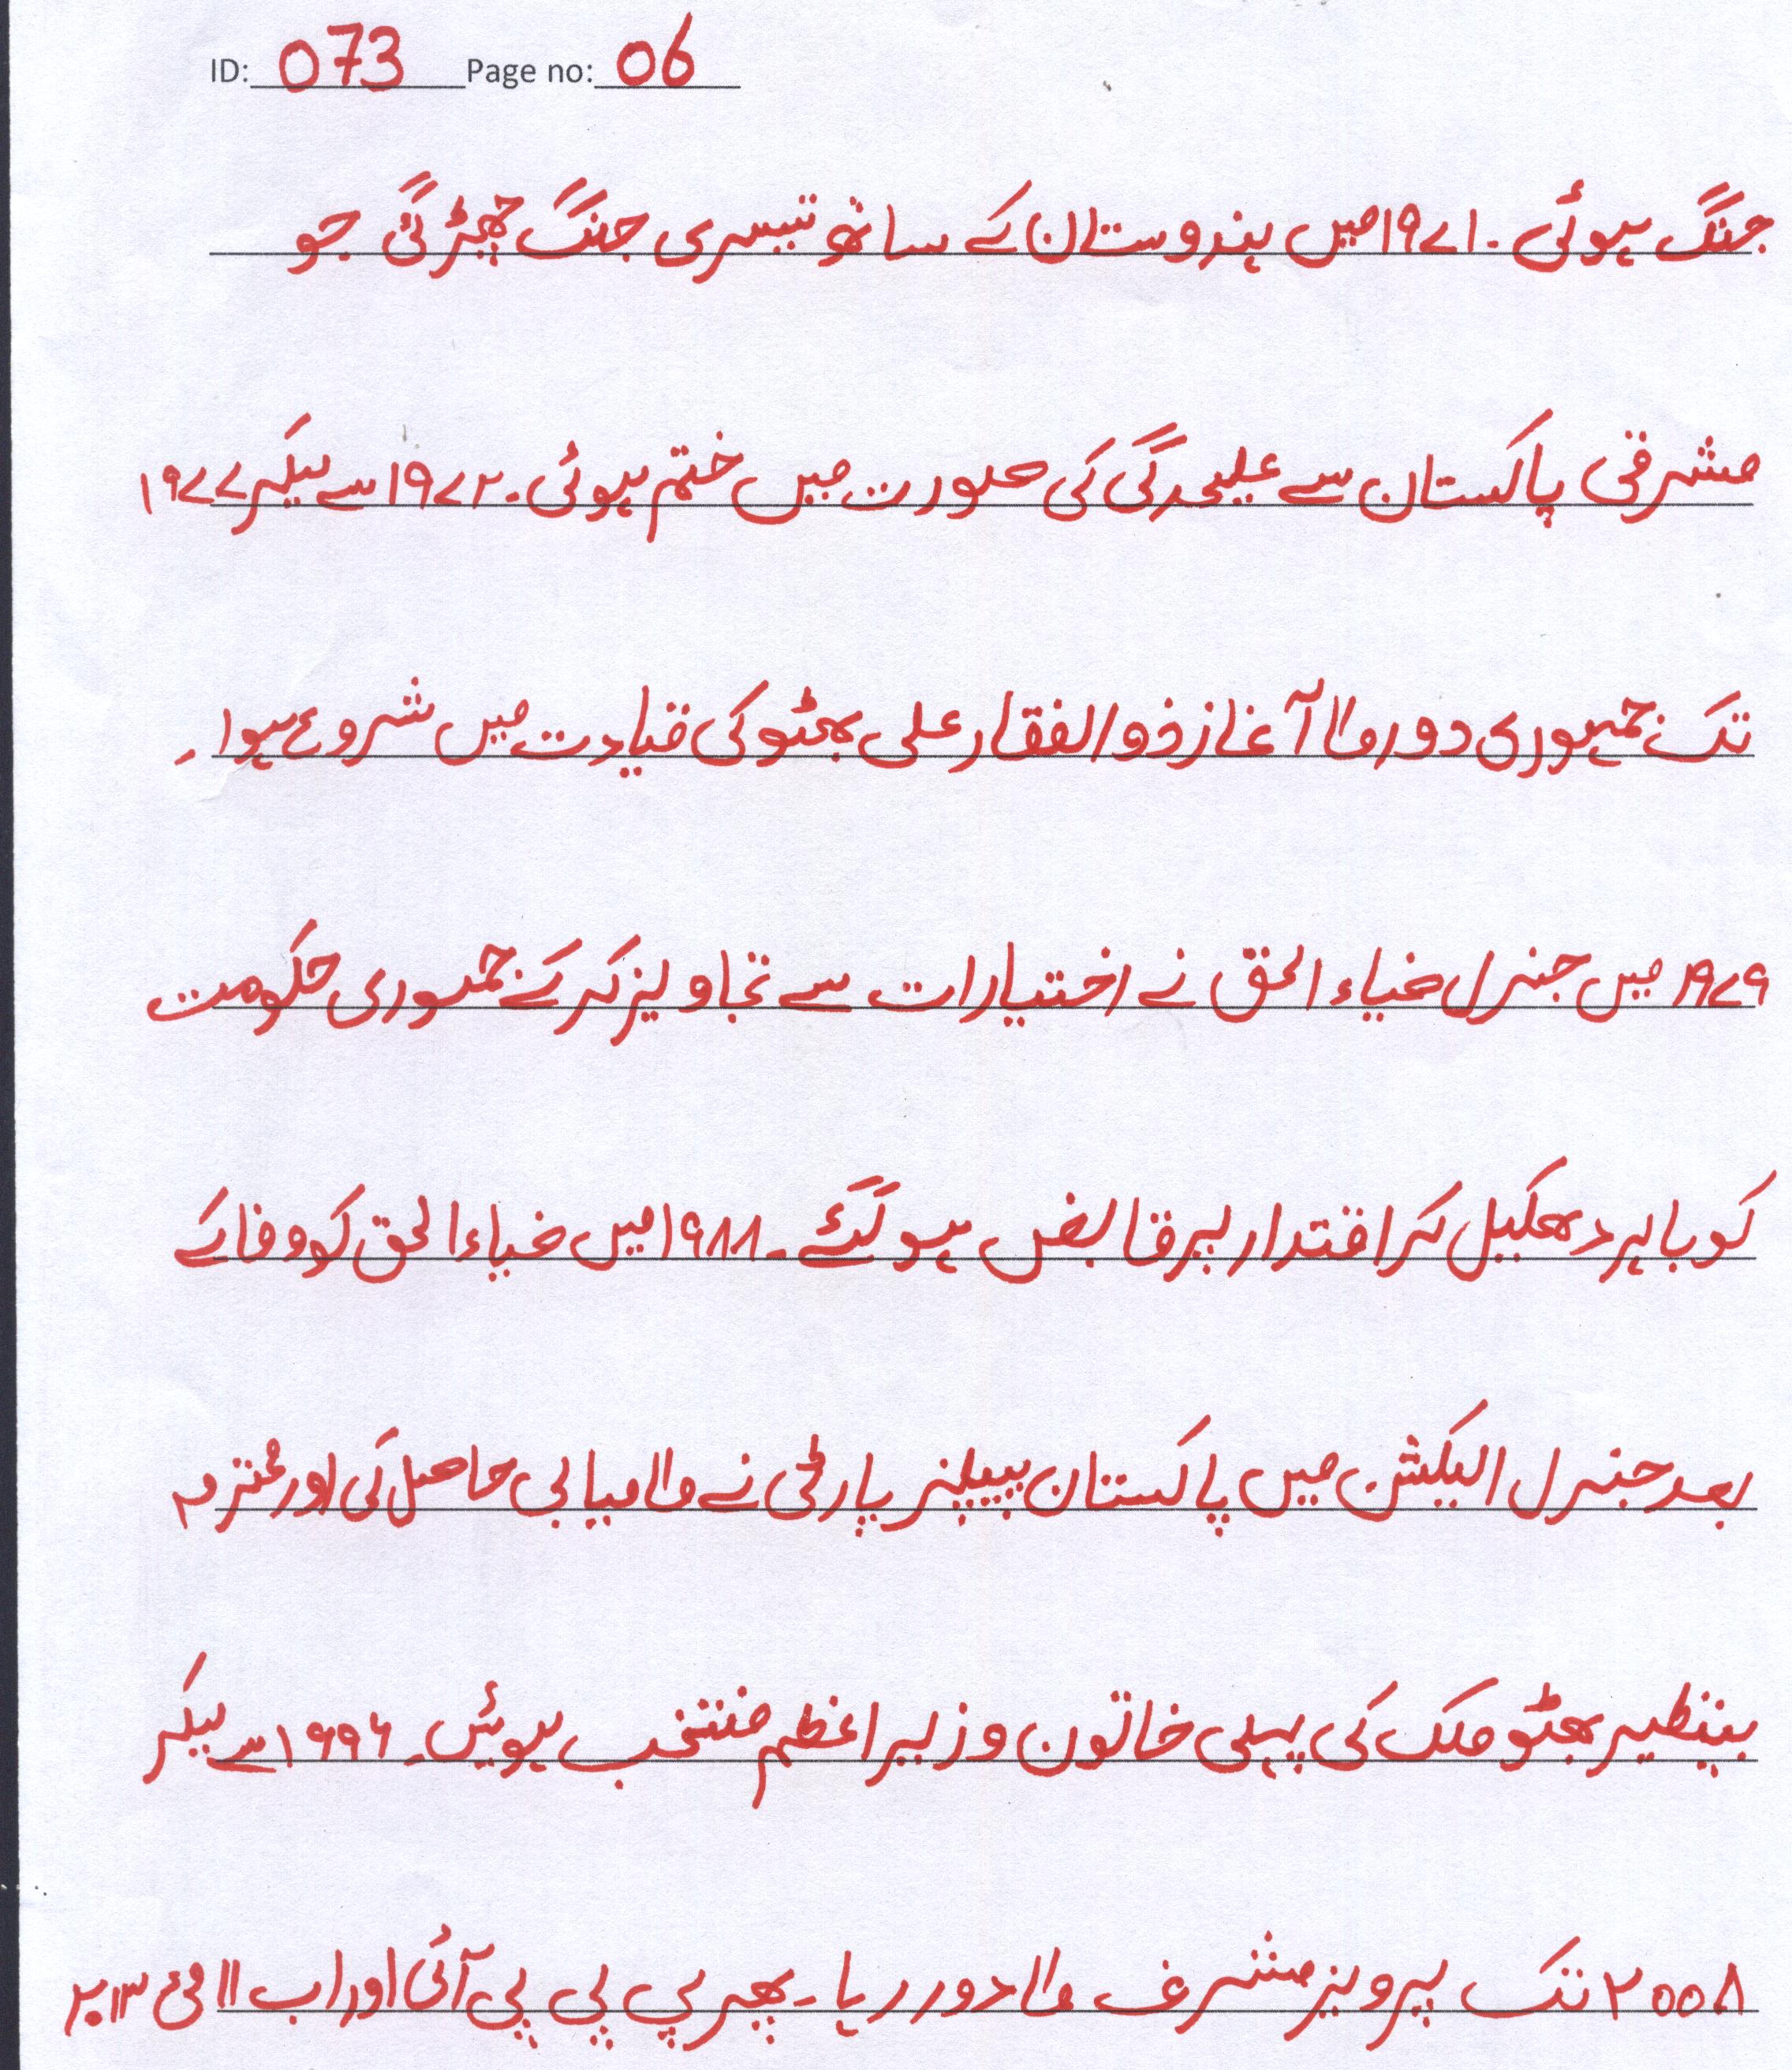 ID: 073 Page no: 06
جنگ ہوئی۔ ۱۹۷۱ میں ہندوستان کے ساتھ تیسری جنگ چھڑ گئی جو
مشرقی پاکستان سے علیحدگی کی صورت میں ختم ہوئی۔ ۱۹۷۲ سے لیکر ۱۹۷۷
تک جمہوری دور کا آغاز ذوالفقار علی بھٹو کی قیادت میں شروع ہوا۔
۱۹۷۹ میں جنرل ضیاء الحق نے اختیارات سے تجاویز کر کے جمہوری حکومت
کو باہر دھکیل کر اقتدار پر قابض ہو گئے۔ ۱۹۸۸ میں ضیاء الحق کو وفا کے
بعد جنرل الیکشن میں پاکستان پیپلز پارٹی نے کامیابی حاصل کی اور محترمہ
بینظیر بھٹو ملک کی پہلی خاتون وزیر اعظم منتخب ہوئیں۔ ۱۹۹۶ سے لیکر
۲۰۰۸ تک پرویز مشرف کا دور رہا۔ پھر پی پی پی آئی اور اب ۱۱ مئی ۲۰۱۳